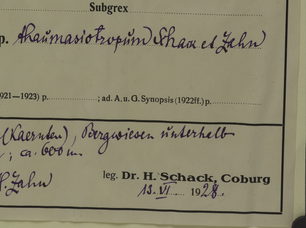 Subgrex
p. thaumasiotropum Schack et Zahn
1921—1923) p. ; ad. A. u. G. Synopsis (1922ff.) p.
(Kaernten), Bergwiesen unterhalb
; ca. 600 m.
leg. Dr. H. Schack, Coburg
. Zahn
13. VI. 1928.